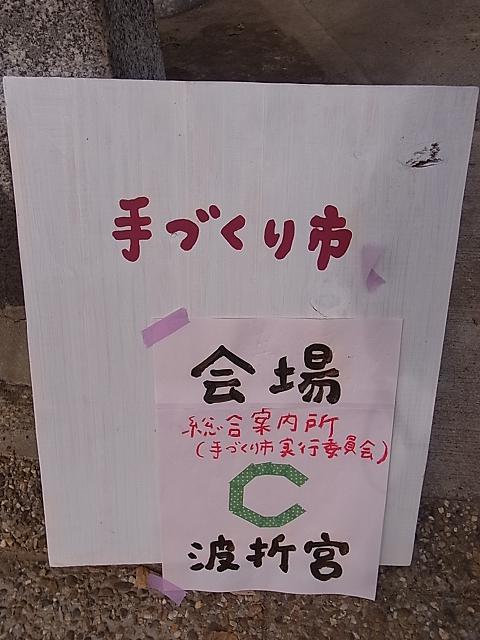 手づくり市
会場
総合案内所
(手づくり市実行委員会)
C
波折宮